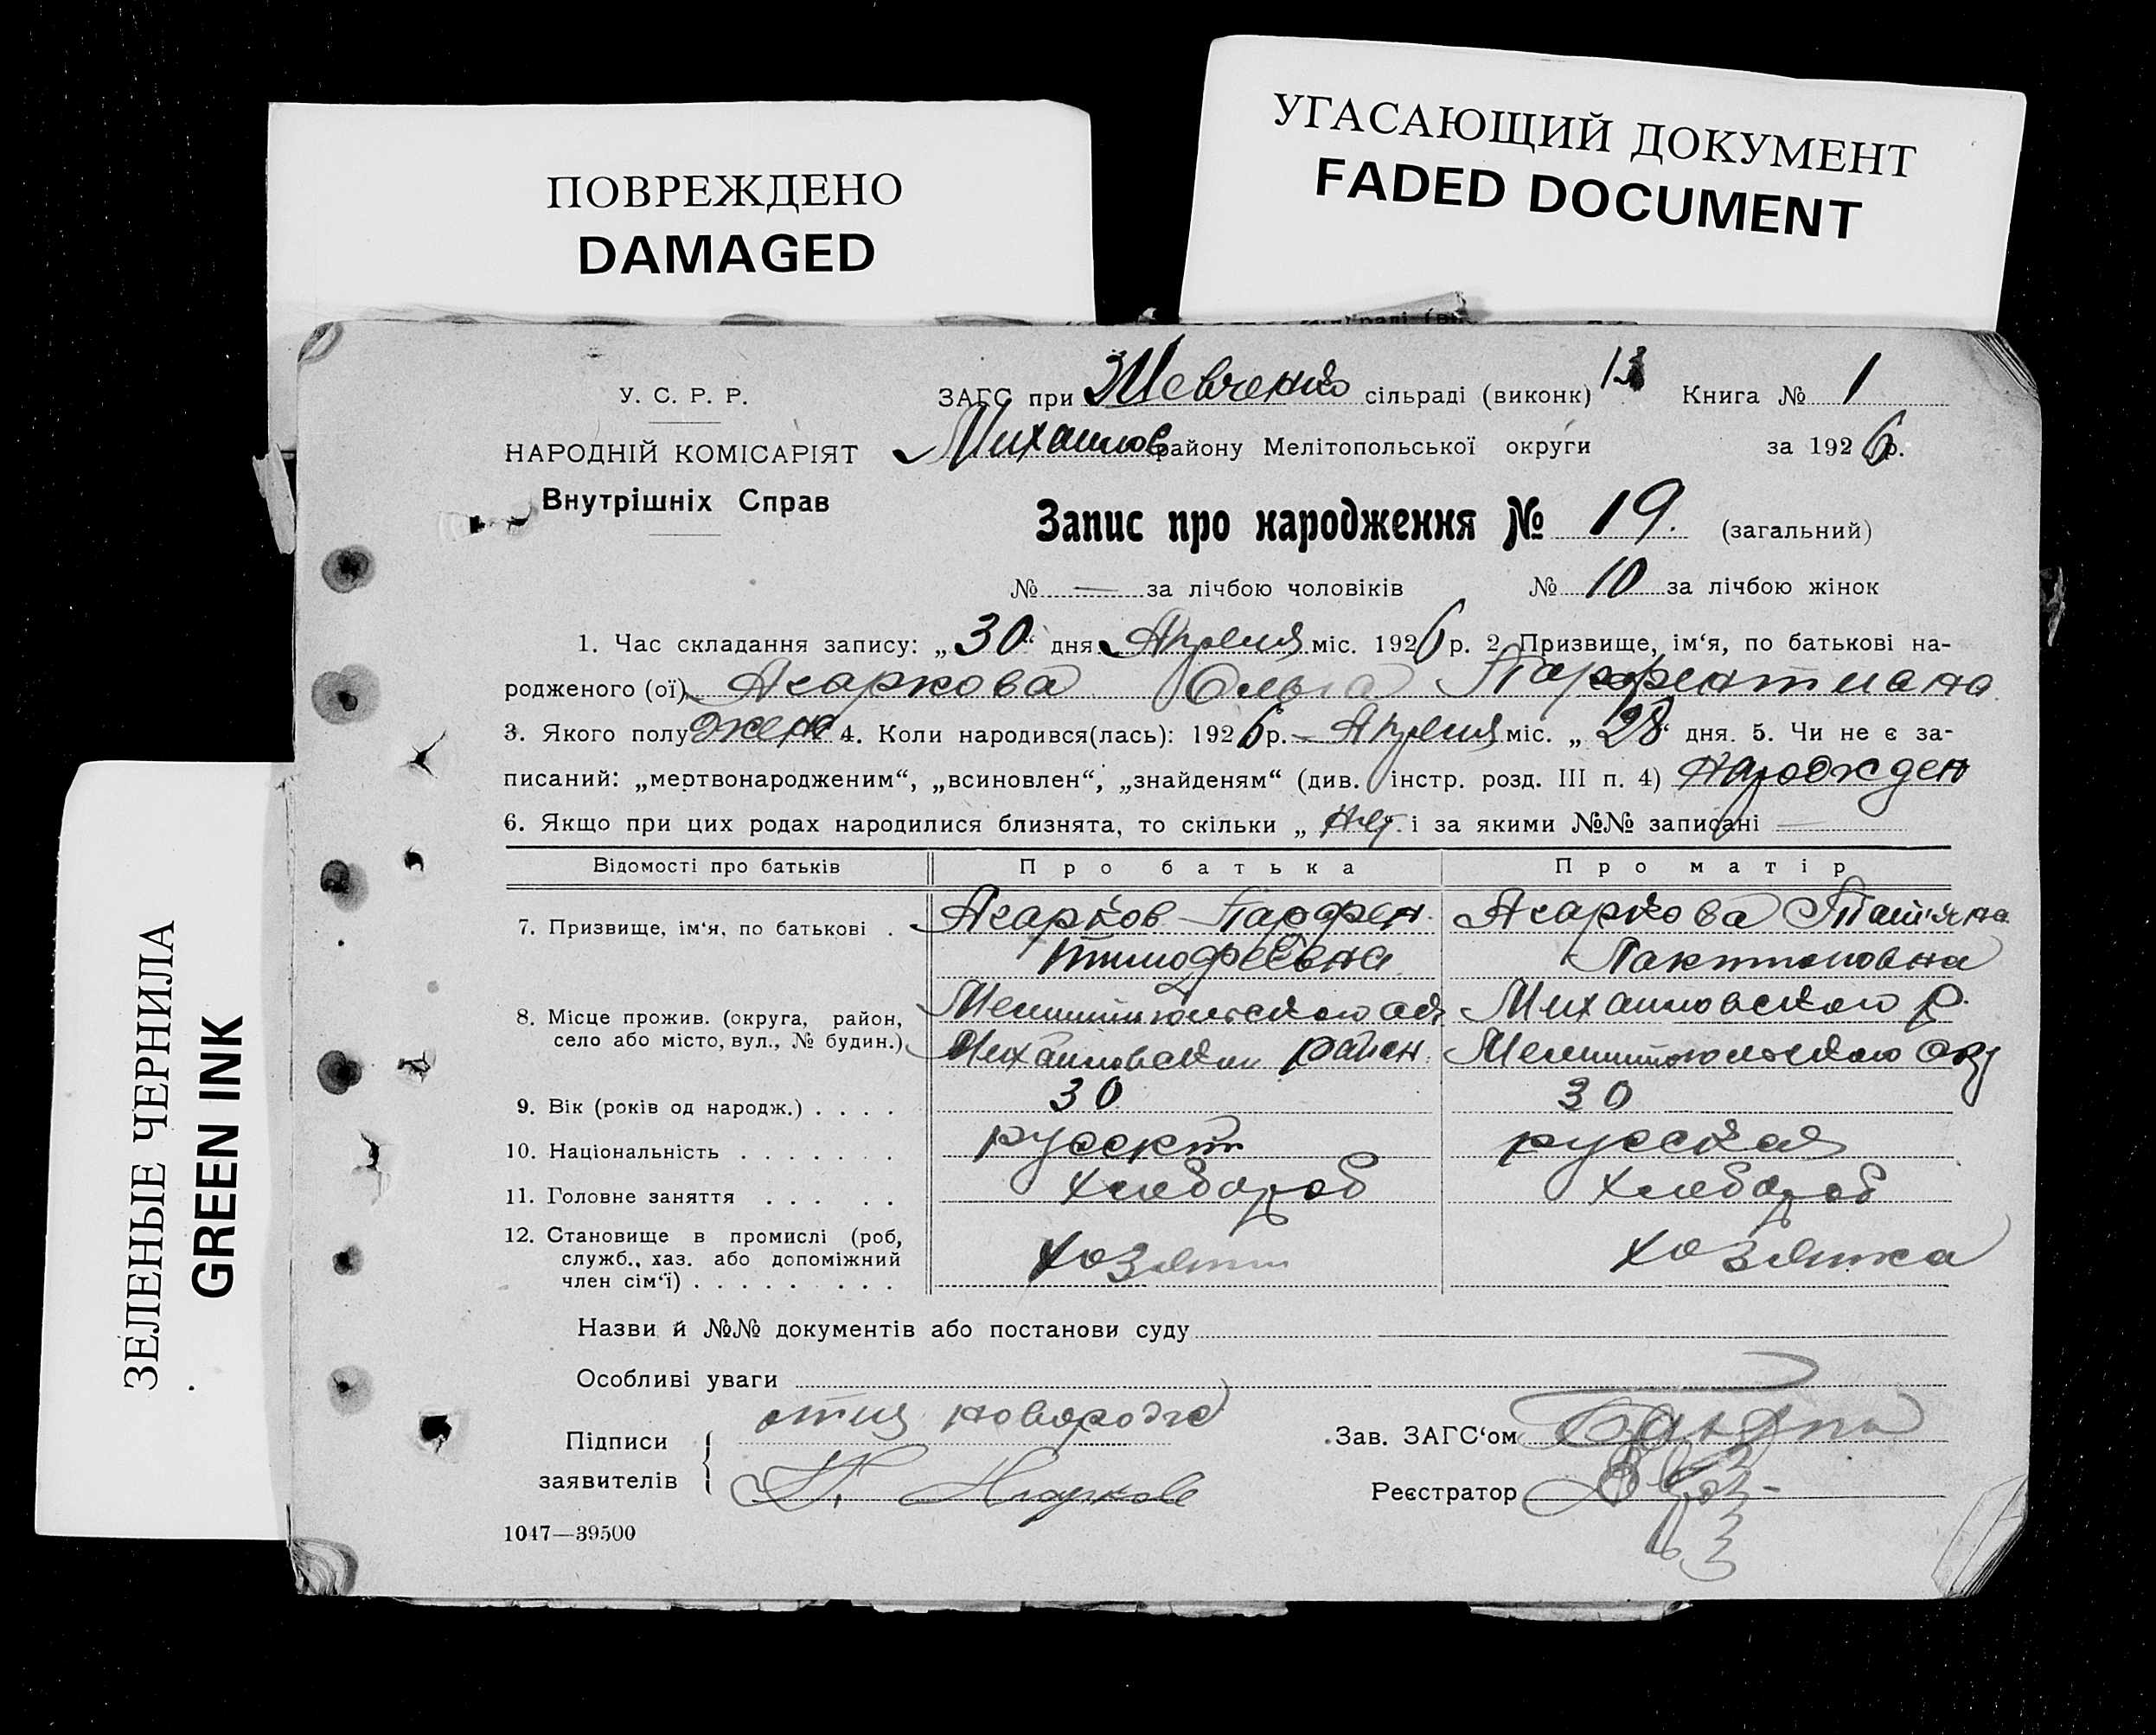 ПОВРЕЖДЕНО
DAMAGED
УГАСАЮЩИЙ ДОКУМЕНТ
FADED DOCUMENT
ЗЕЛЕНЫЕ ЧЕРНИЛА
GREEN INK
У. С. Р. Р.
НАРОДНІЙ КОМІСАРІЯТ
Внутрішніх Справ
ЗАГС при Шевченко сільраді (виконк) 13 Книга № 1
Михайлов району Мелітопольської округи за 1926 р.
Запис про народження № 19. (загальний)
№ — за лічбою чоловіків № 10 за лічбою жінок
1. Час складання запису: „30“ дня Апреля міс. 1926 р. 2 Призвище, ім‘я, по батькові на-
родженого (ої) Ольга
3. Якого полу жен 4. Коли народився(лась): 1926 р. Апреля міс. „28“ дня. 5. Чи не є за-
писаний: „мертвонародженим“, „всиновлен“, „знайденям“ (див. інстр. розд. III п. 4) Народжден
6. Якщо при цих родах народилися близнята, то скільки „ Нет. і за якими №№ записані —
Відомості про батьків Про батька Про матір
7. Призвище, ім‘я, по батькові . Парфен Татьяна
8. Місце прожив. (округа, район, Михайловского р.
село або місто, вул., № будин.) район.
9. Вік (років од народж.) . . . . 30 30
10. Національність . . . . . . . русский русская
11. Головне заняття . . . . . хлебороб хлебороб
12. Становище в промислі (роб,
служб., хаз. або допоміжний хозяин хозяйка
член сім‘ї) . . . . . . . . .
Назви й №№ документів або постанови суду
Особливі уваги
отец
Підписи Зав. ЗАГС‘ом
заявителів Реєстратор
1047—39500